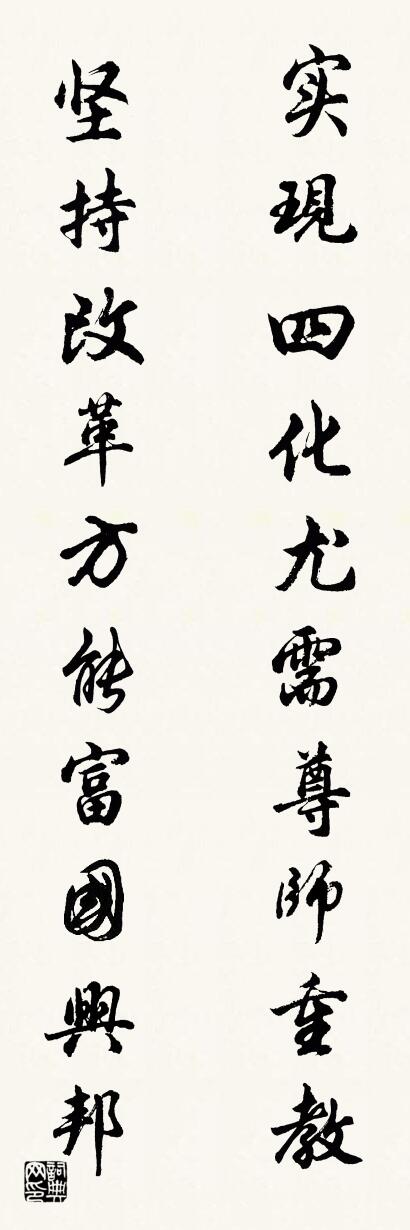 实現四化尤需尊師重教
坚持改革方能富國興邦
詞典网印